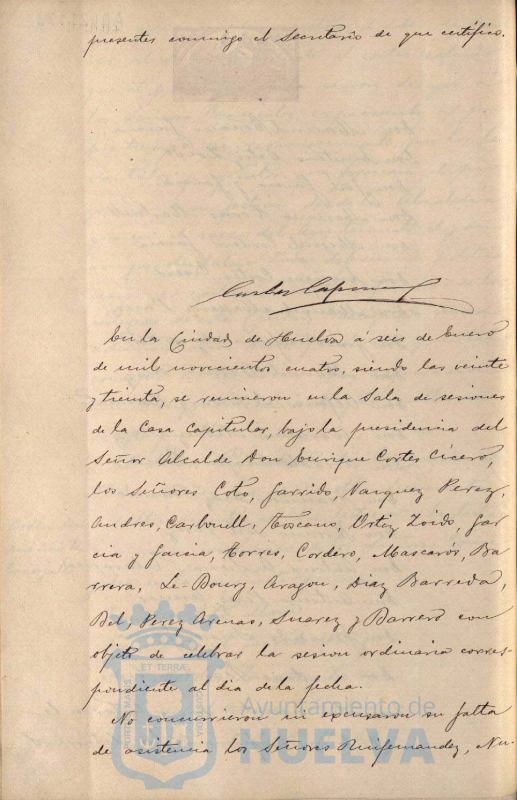 presentes conmigo el Secretario de que certifico.
Carlos
En la Ciudad de Huelva á seis de Enero
de mil novecientos cuatro, siendo las veinte
y treinta, se reunieron en la Sala de sesiones
de la Casa Capitular, bajo la presidencia del
Señor Alcalde Don Enrique Cortes Cícero,
los Señores Coto, Garrido, Vazquez Perez,
Andres, Carbonell, Toscano, Ortiz Zoido, Gar
cia y Garcia, Torres, Cordero, Mascarós, Ba
rrera, Le-Bourg, Aragon, Diaz Barreda,
Bel, Perez Arenas, Suarez y Barrero con
objeto de celebrar la sesion ordinaria corres-
pondiente al dia de la fecha.
No concurrieron ni excusaron su falta
de asistencia los Señores Ruifernandez, Nu-
ET TERRÆ
Ayuntamiento de
HUELVA